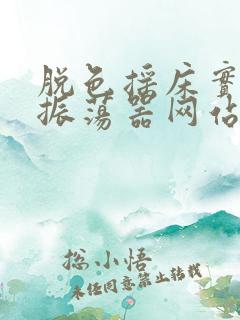 脱色摇床实
振荡器网站
总小悟
未经同意禁止转载